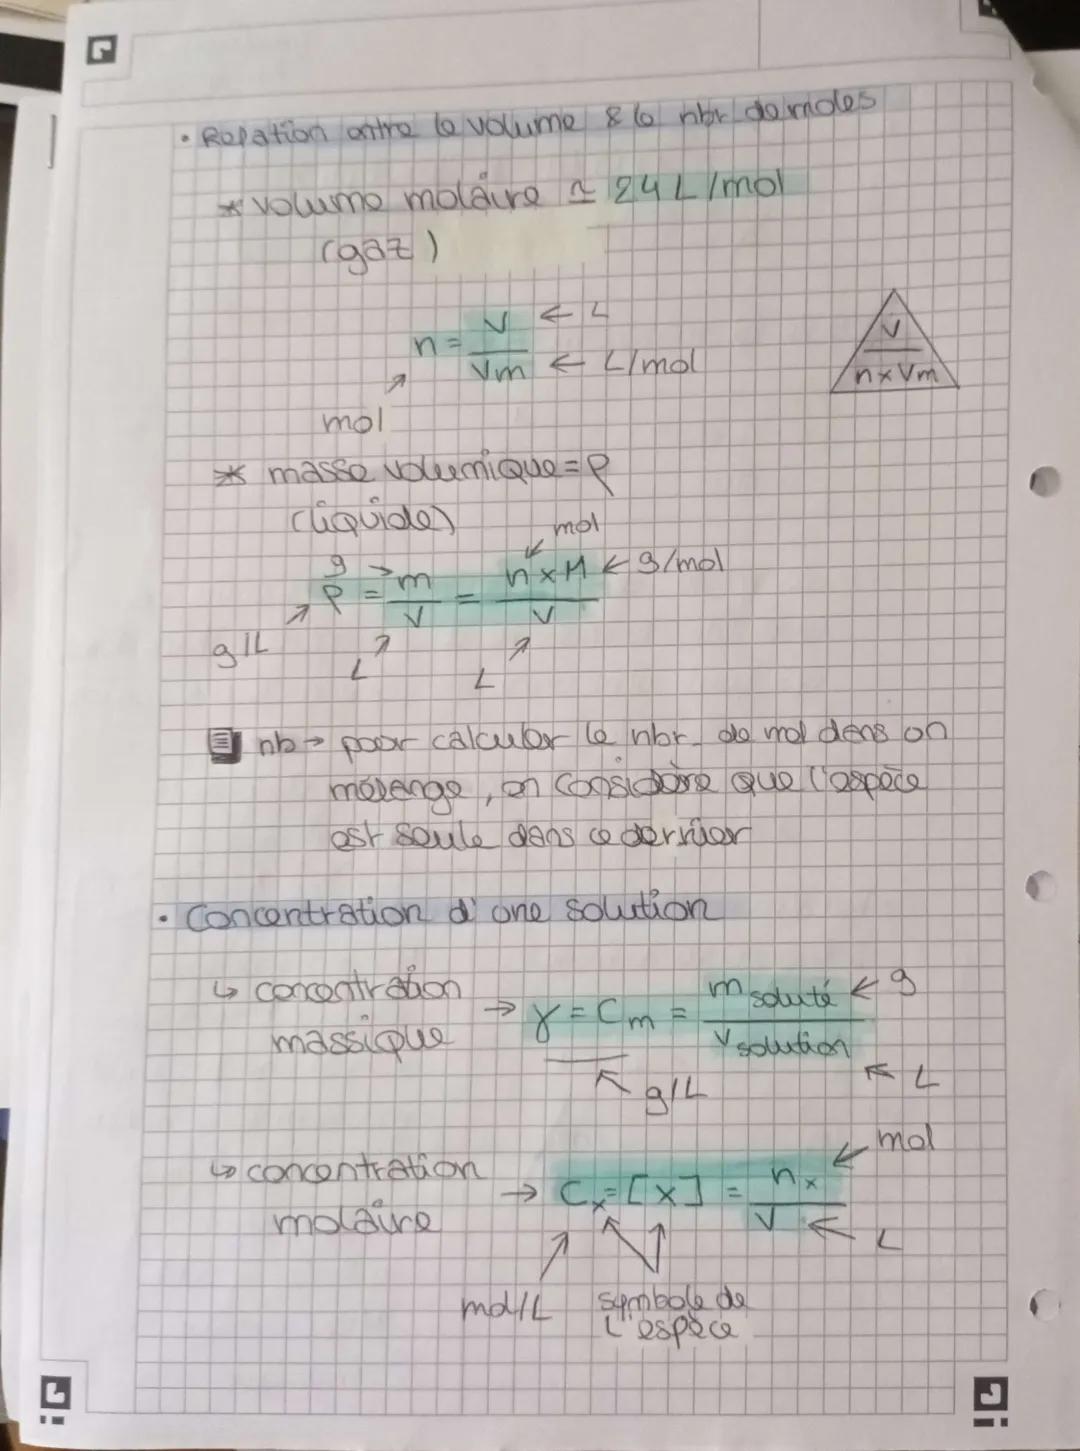 • Relation entre le volume & le nbr de moles
* volume molaire ≃ 24 L/mol
(gaz)
n = V/Vm ← L
← L/mol
mol
V
n x Vm
* masse volumique = ρ
(liquide)
mol
g → ρ = m/V = n x M/V ← g/mol
g/L
L
L
nb → pour calculer le nbr de mol dans un
mélange, on considère que l'espèce
est seule dans ce dernier
• Concentration d'une solution
↳ concentration
massique
→ γ = Cm = m soluté / V solution ← g
↖ L
↖ g/L
↳ concentration
molaire
→ Cx = [x] = nx/V
↙ mol
← L
mol/L symbole de
l'espèce